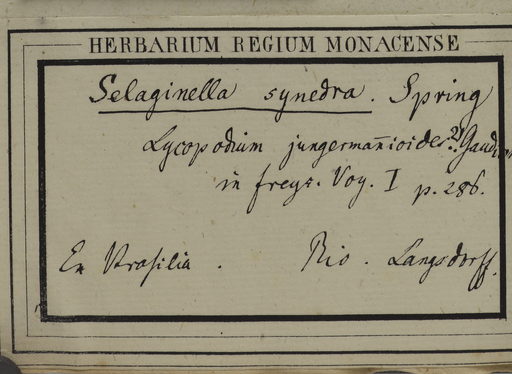 HERBARIUM REGIUM MONACENSE
Selaginella synedra. Spring
Lycopodium jungermañioides?! Gaudich
in freyc. Voy. I p. 286.
Ex Brasilia. Rio. Langsdorff.